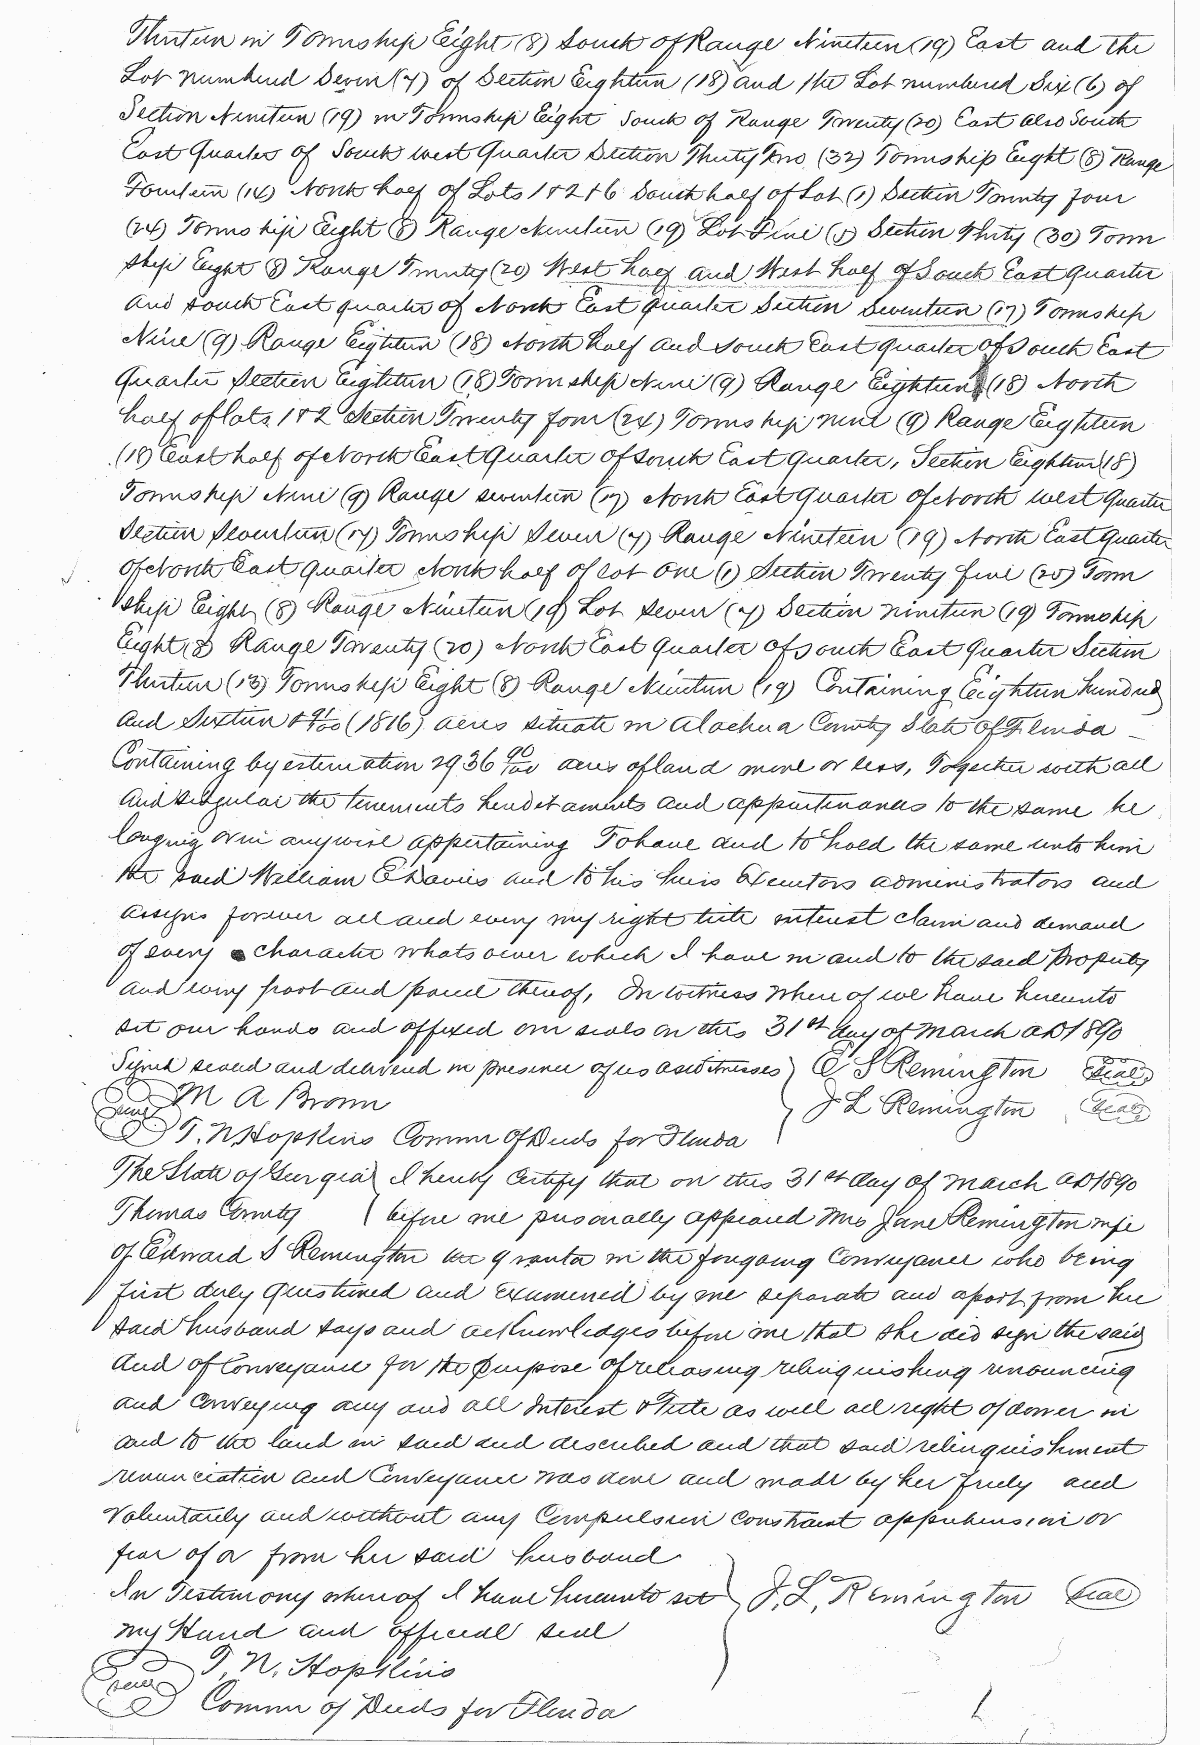 Thirteen in Township Eight (8) South of Range Nineteen (19) East and the
Lot numbered Seven (7) of Section Eighteen (18) and the Lot numbered Six (6) of
Section Nineteen (19) in Township Eight South of Range Twenty (20) East also South
East Quarter of South west Quarter Section Thirty Two (32) Township Eight (8) Range
Fourteen (14) North half of Lots 1 & 2 & 6 South half of Lot (1) Section Twenty four
(24) Township Eight (8) Range Nineteen (19) Lot Five (5) Section Thirty (30) Town
ship Eight (8) Range Twenty (20) West half and West half of South East quarter
and South East quarter of North East quarter Section Seventeen (17) Township
Nine (9) Range Eighteen (18) North half and South East quarter of South East
Quarter Section Eighteen (18) Township Nine (9) Range Eighteen (18) North
half of lots 1 & 2 Section Twenty four (24) Township nine (9) Range Eighteen
(18) East half of North East Quarter of South East Quarter, Section Eighteen (18)
Township Nine (9) Range seventeen (17) North East Quarter of North west Quarter
Section Seventeen (17) Township Seven (7) Range Nineteen (19) North East Quarter
of North East Quarter North half of lot One (1) Section Twenty five (25) Town
ship Eight (8) Range Nineteen (19) Lot seven (7) Section nineteen (19) Township
Eight (8) Range Twenty (20) North East Quarter of South East Quarter Section
Thirteen (13) Township Eight (8) Range Nineteen (19) Containing Eighteen hundred
and Sixteen & 91/100 (1816) acres situate in Alachua County State of Florida
Containing by estimation 2936 90/100 acres of land more or less, Together with all
and singular the tenements hereditaments and appurtenances to the same be
longing or in anywise appertaining To have and to hold the same unto him
the said William E Davies and to his heirs Executors administrators and
assigns forever all and every my right title interest claim and demand
of every character whatsoever which I have in and to the said Property
and every part and parcel thereof, In witness where of we have hereunto
set our hands and affixed our seals on this 31st day of March AD 1890
Signed sealed and delivered in presence of us as witnesses } E S Remington Seal
Seal M A Brown J L Remington Seal
T. N Hopkins Commr of Deeds for Florida
The State of Georgia } I hereby Certify that on this 31st day of March AD 1890
Thomas County } before me personally appeared Mrs Jane Remington wife
of Edward S Remington the grantor in the foregoing Conveyance who being
first duly questioned and examined by me separate and apart from her
said husband says and acknowledges before me that she did sign the said
deed of Conveyance for the purpose of releasing relinquishing renouncing
and Conveying any and all Interest & Title as well all right of dower in
and to the land in said deed described and that said relinquishment
renunciation and Conveyance was done and made by her freely and
Voluntarily and without any Compulsion constraint apprehension or
fear of or from her said husband
In Testimony where of I have hereunto set } J. L. Remington Seal
my Hand and official seal
Seal T. N. Hopkins
Commr of Deeds for Florida